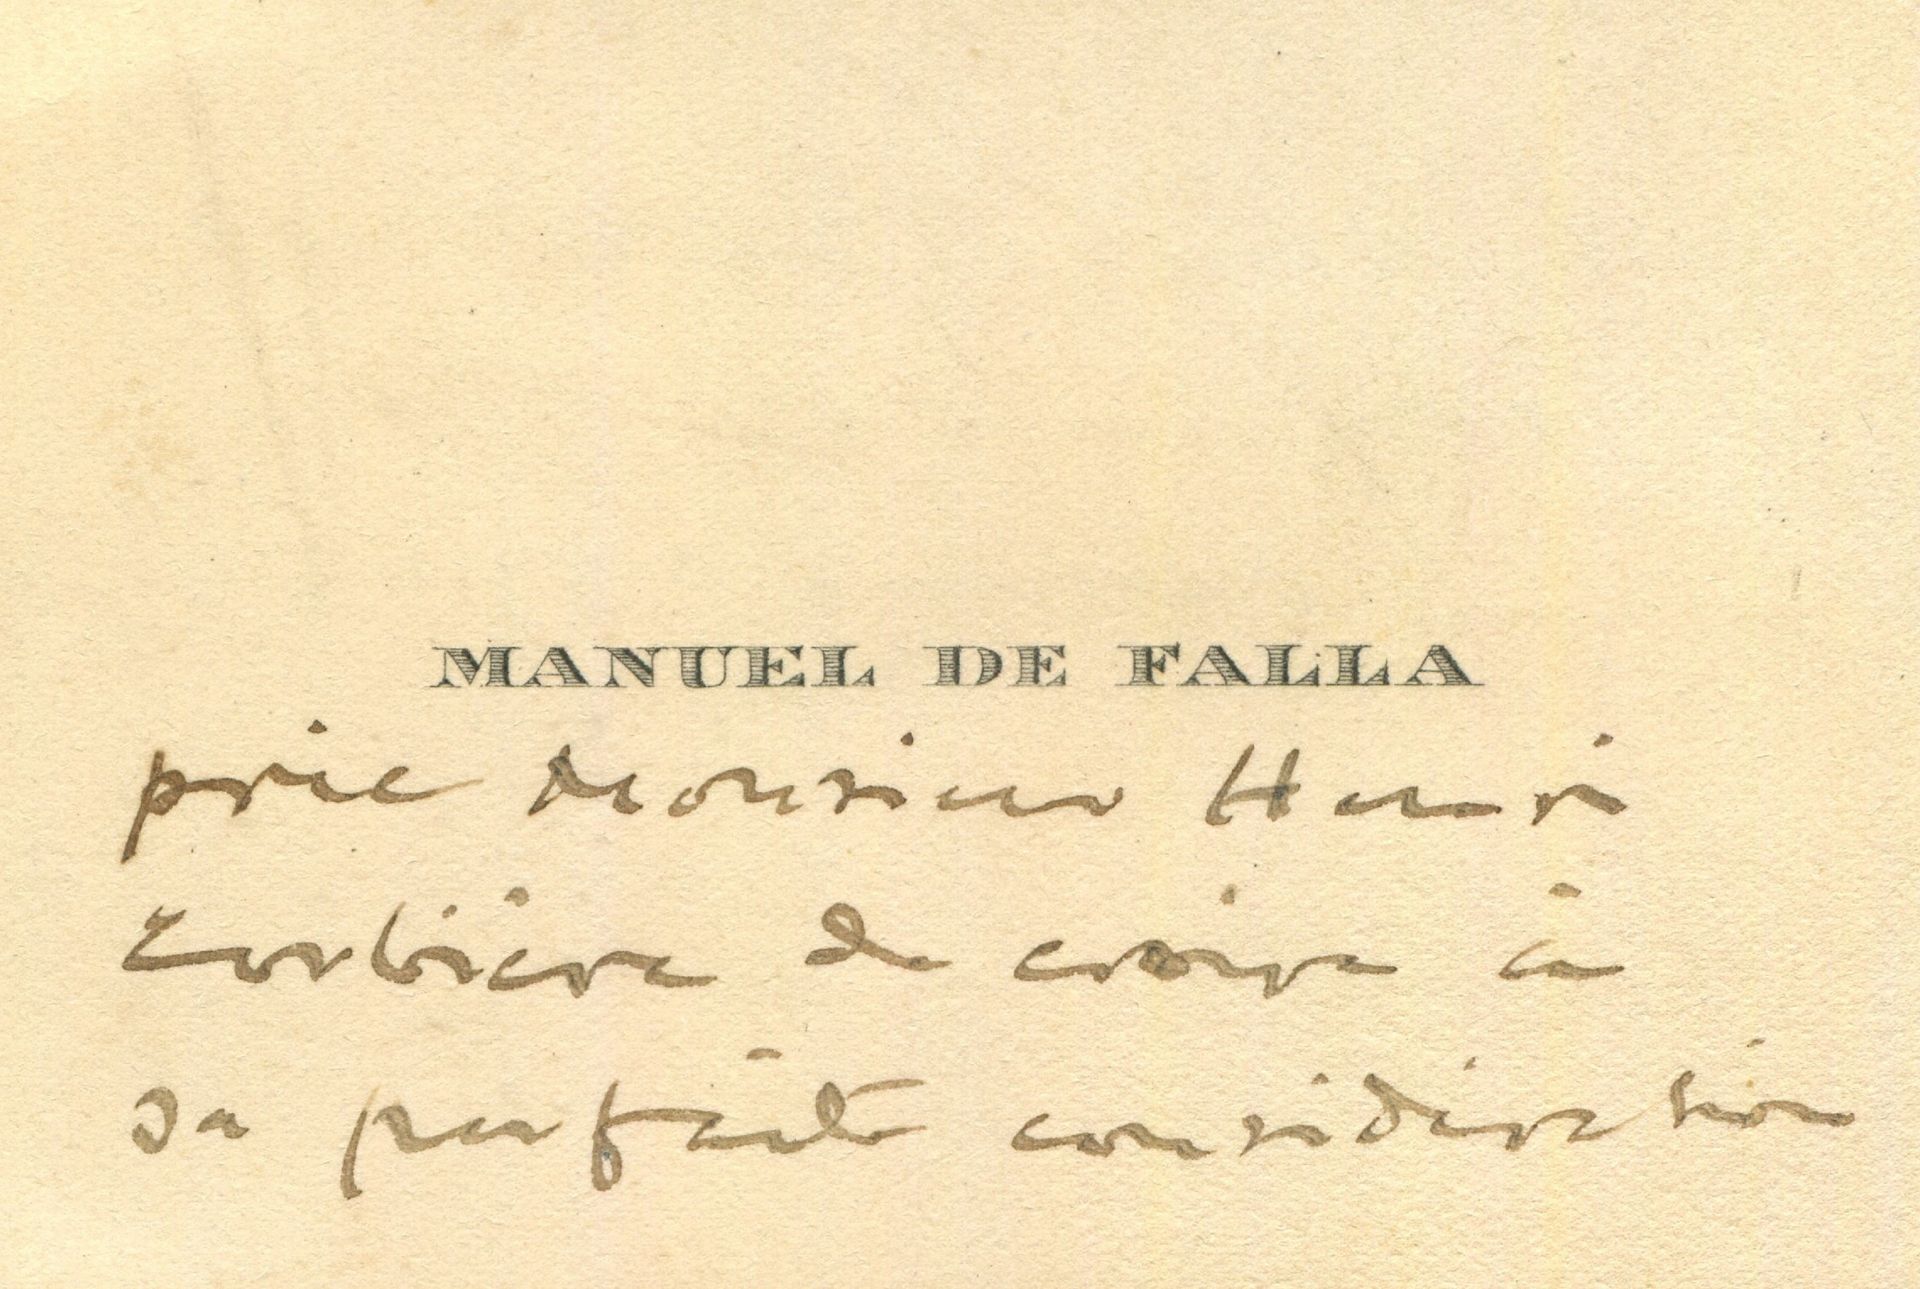 MANUEL DE FALLA
prie Monsieur Henri
Corbière de croire à
sa parfaite considération